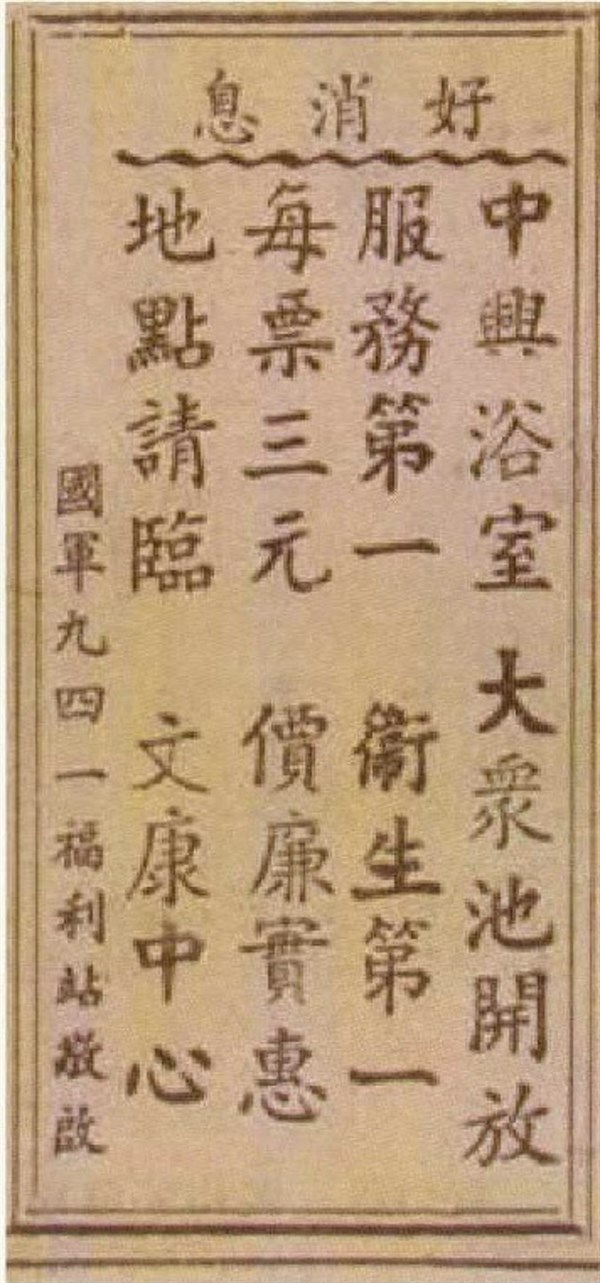 好消息
中興浴室 大眾池開放
服務第一 衞生第一
每票三元 價廉實惠
地點請臨 文康中心
國軍九四一福利站敬啟